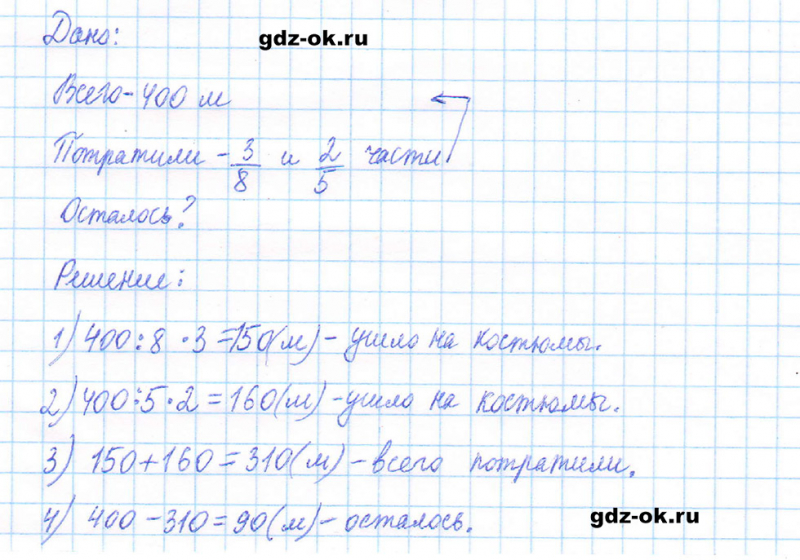 Дано:
gdz-ok.ru
Всего - 400 м
Потратили - 3/8 и 2/5 части
Осталось?
Решение:
1) 400 : 8 · 3 = 150 (м) - ушло на костюмы.
2) 400 : 5 · 2 = 160 (м) - ушло на костюмы.
3) 150 + 160 = 310 (м) - всего потратили.
4) 400 - 310 = 90 (м) - осталось.
gdz-ok.ru